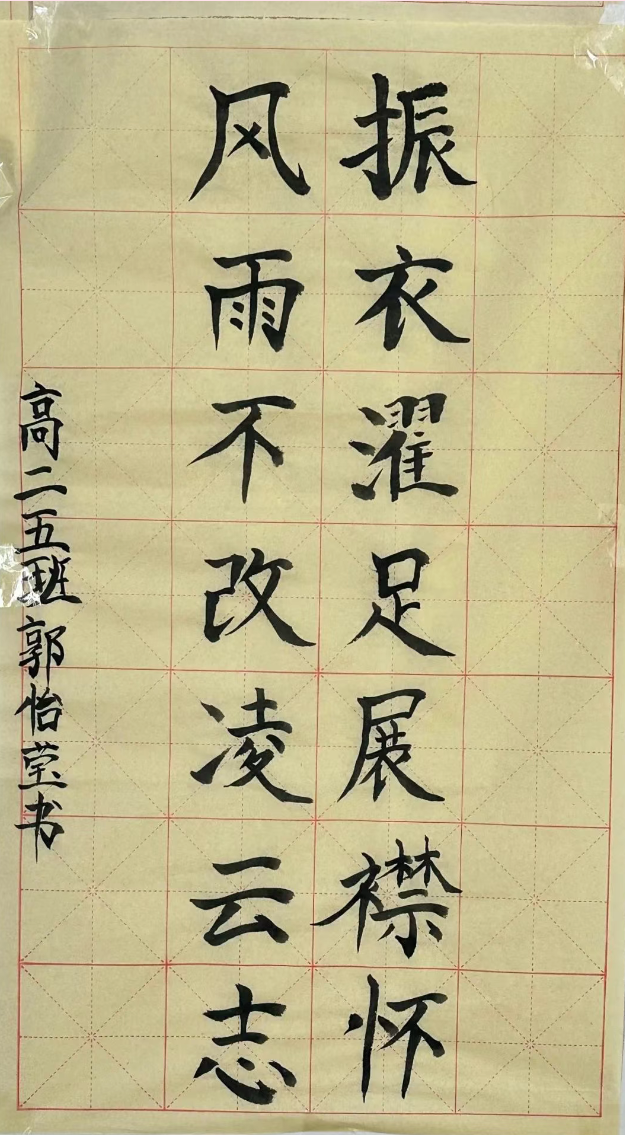 振衣濯足展襟怀
风雨不改凌云志
高二五班郭怡莹书